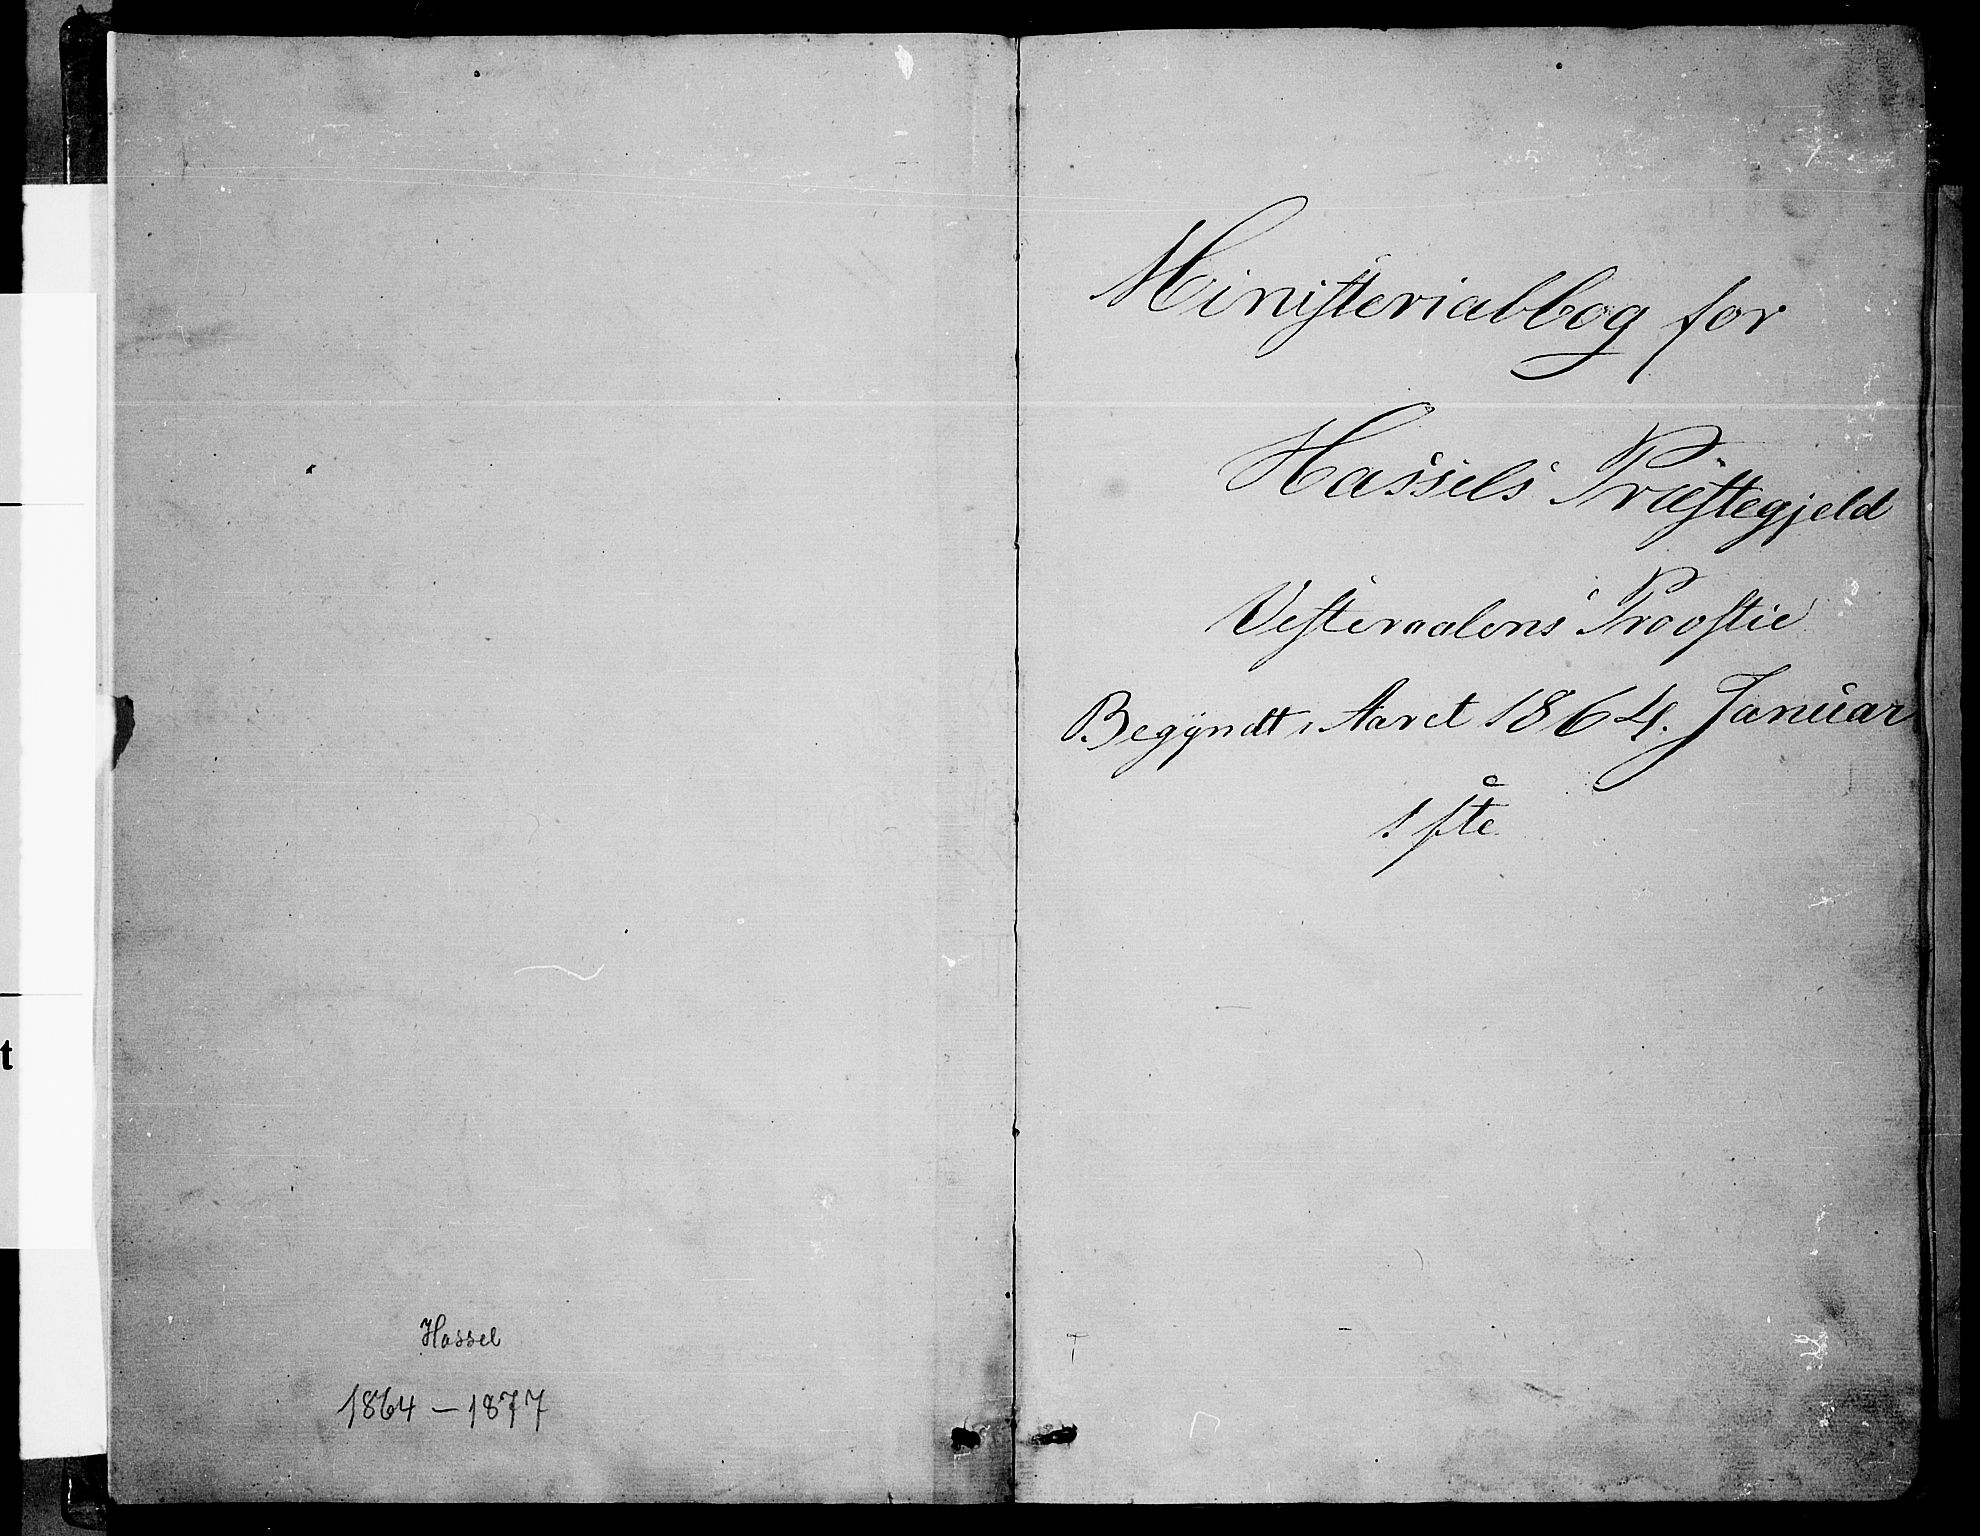 Hassel
1864 – 1877
Ministerialbog for
Hassels Præstegjeld
Vesteraalens Provstie
Begyndt i Aaret 1864. Januar
1ste
t